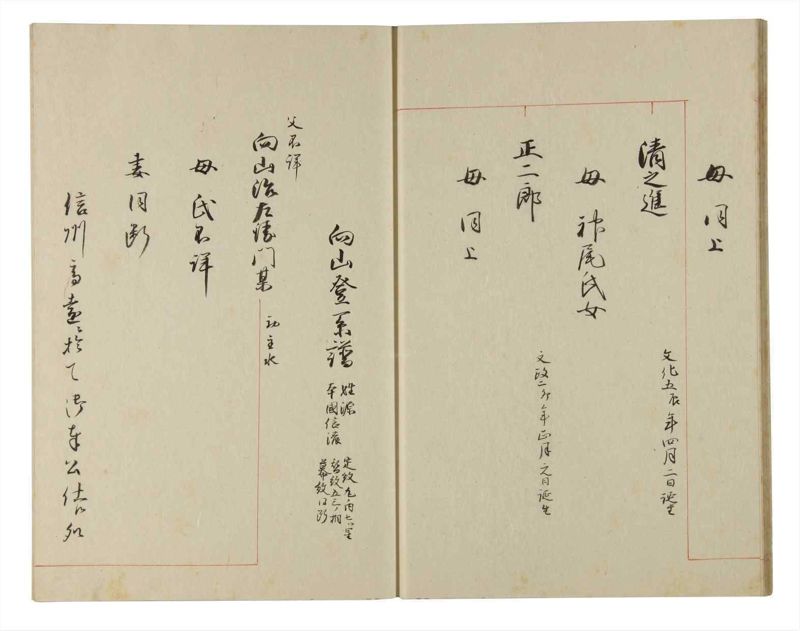 母 同上
清之進
文化五辰年四月二日誕生
母 神尾氏女
正二郎
文政二卯年正月元日誕生
母 同上
向山登系譜
姓源
本國信濃
定紋丸内七ツ星
替紋五三ノ桐
幕紋同断
父不詳
向山治左衛門某
初主水
母 氏不詳
妻同断
信州高遠ニ於て御奉公仕候